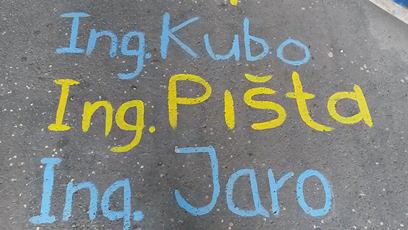 Ing. Kubo
Ing. Pišta
Ing. Jaro